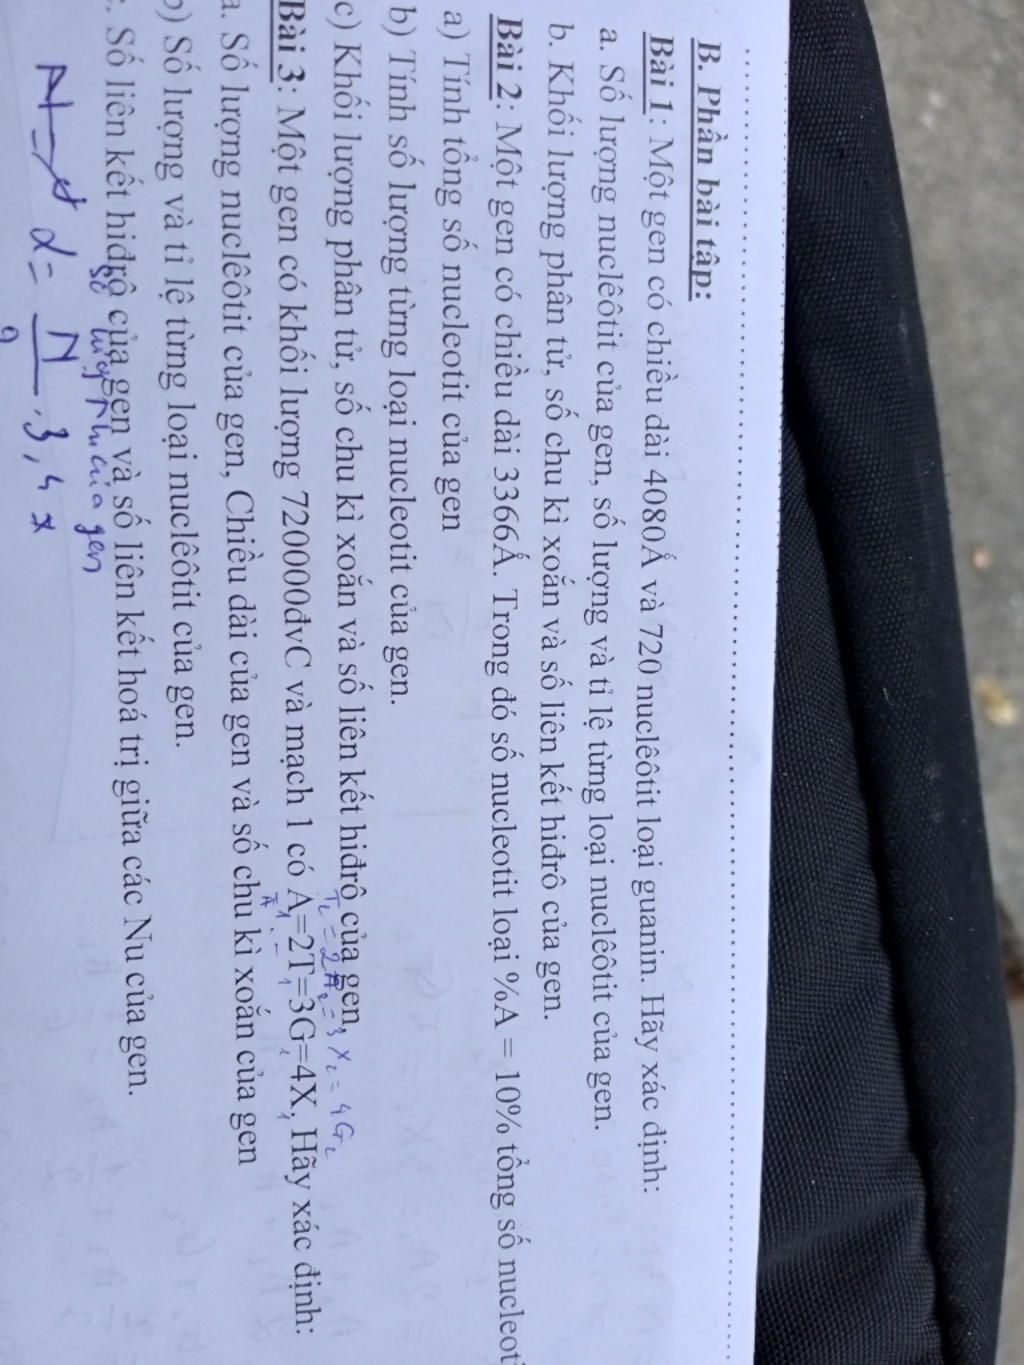 B. Phần bài tập:
Bài 1: Một gen có chiều dài 4080Å và 720 nuclêôtit loại guanin. Hãy xác định:
a. Số lượng nuclêôtit của gen, số lượng và tỉ lệ từng loại nuclêôtit của gen.
b. Khối lượng phân tử, số chu kì xoắn và số liên kết hiđrô của gen.
Bài 2: Một gen có chiều dài 3366Å. Trong đó số nucleotit loại %A = 10% tổng số nucleoti
a) Tính tổng số nucleotit của gen
b) Tính số lượng từng loại nucleotit của gen.
c) Khối lượng phân tử, số chu kì xoắn và số liên kết hiđrô của gen,
T₂ = 2A₂ = 3X₂ = 4G₂
Bài 3: Một gen có khối lượng 720000đvC và mạch 1 có A₁=2T₁=3G₁=4X₁, Hãy xác định:
a. Số lượng nuclêôtit của gen, Chiều dài của gen và số chu kì xoắn của gen
b) Số lượng và tỉ lệ từng loại nuclêôtit của gen.
c. Số liên kết hiđrô của gen và số liên kết hoá trị giữa các Nu của gen.
của gen
= N/2 . 3,4